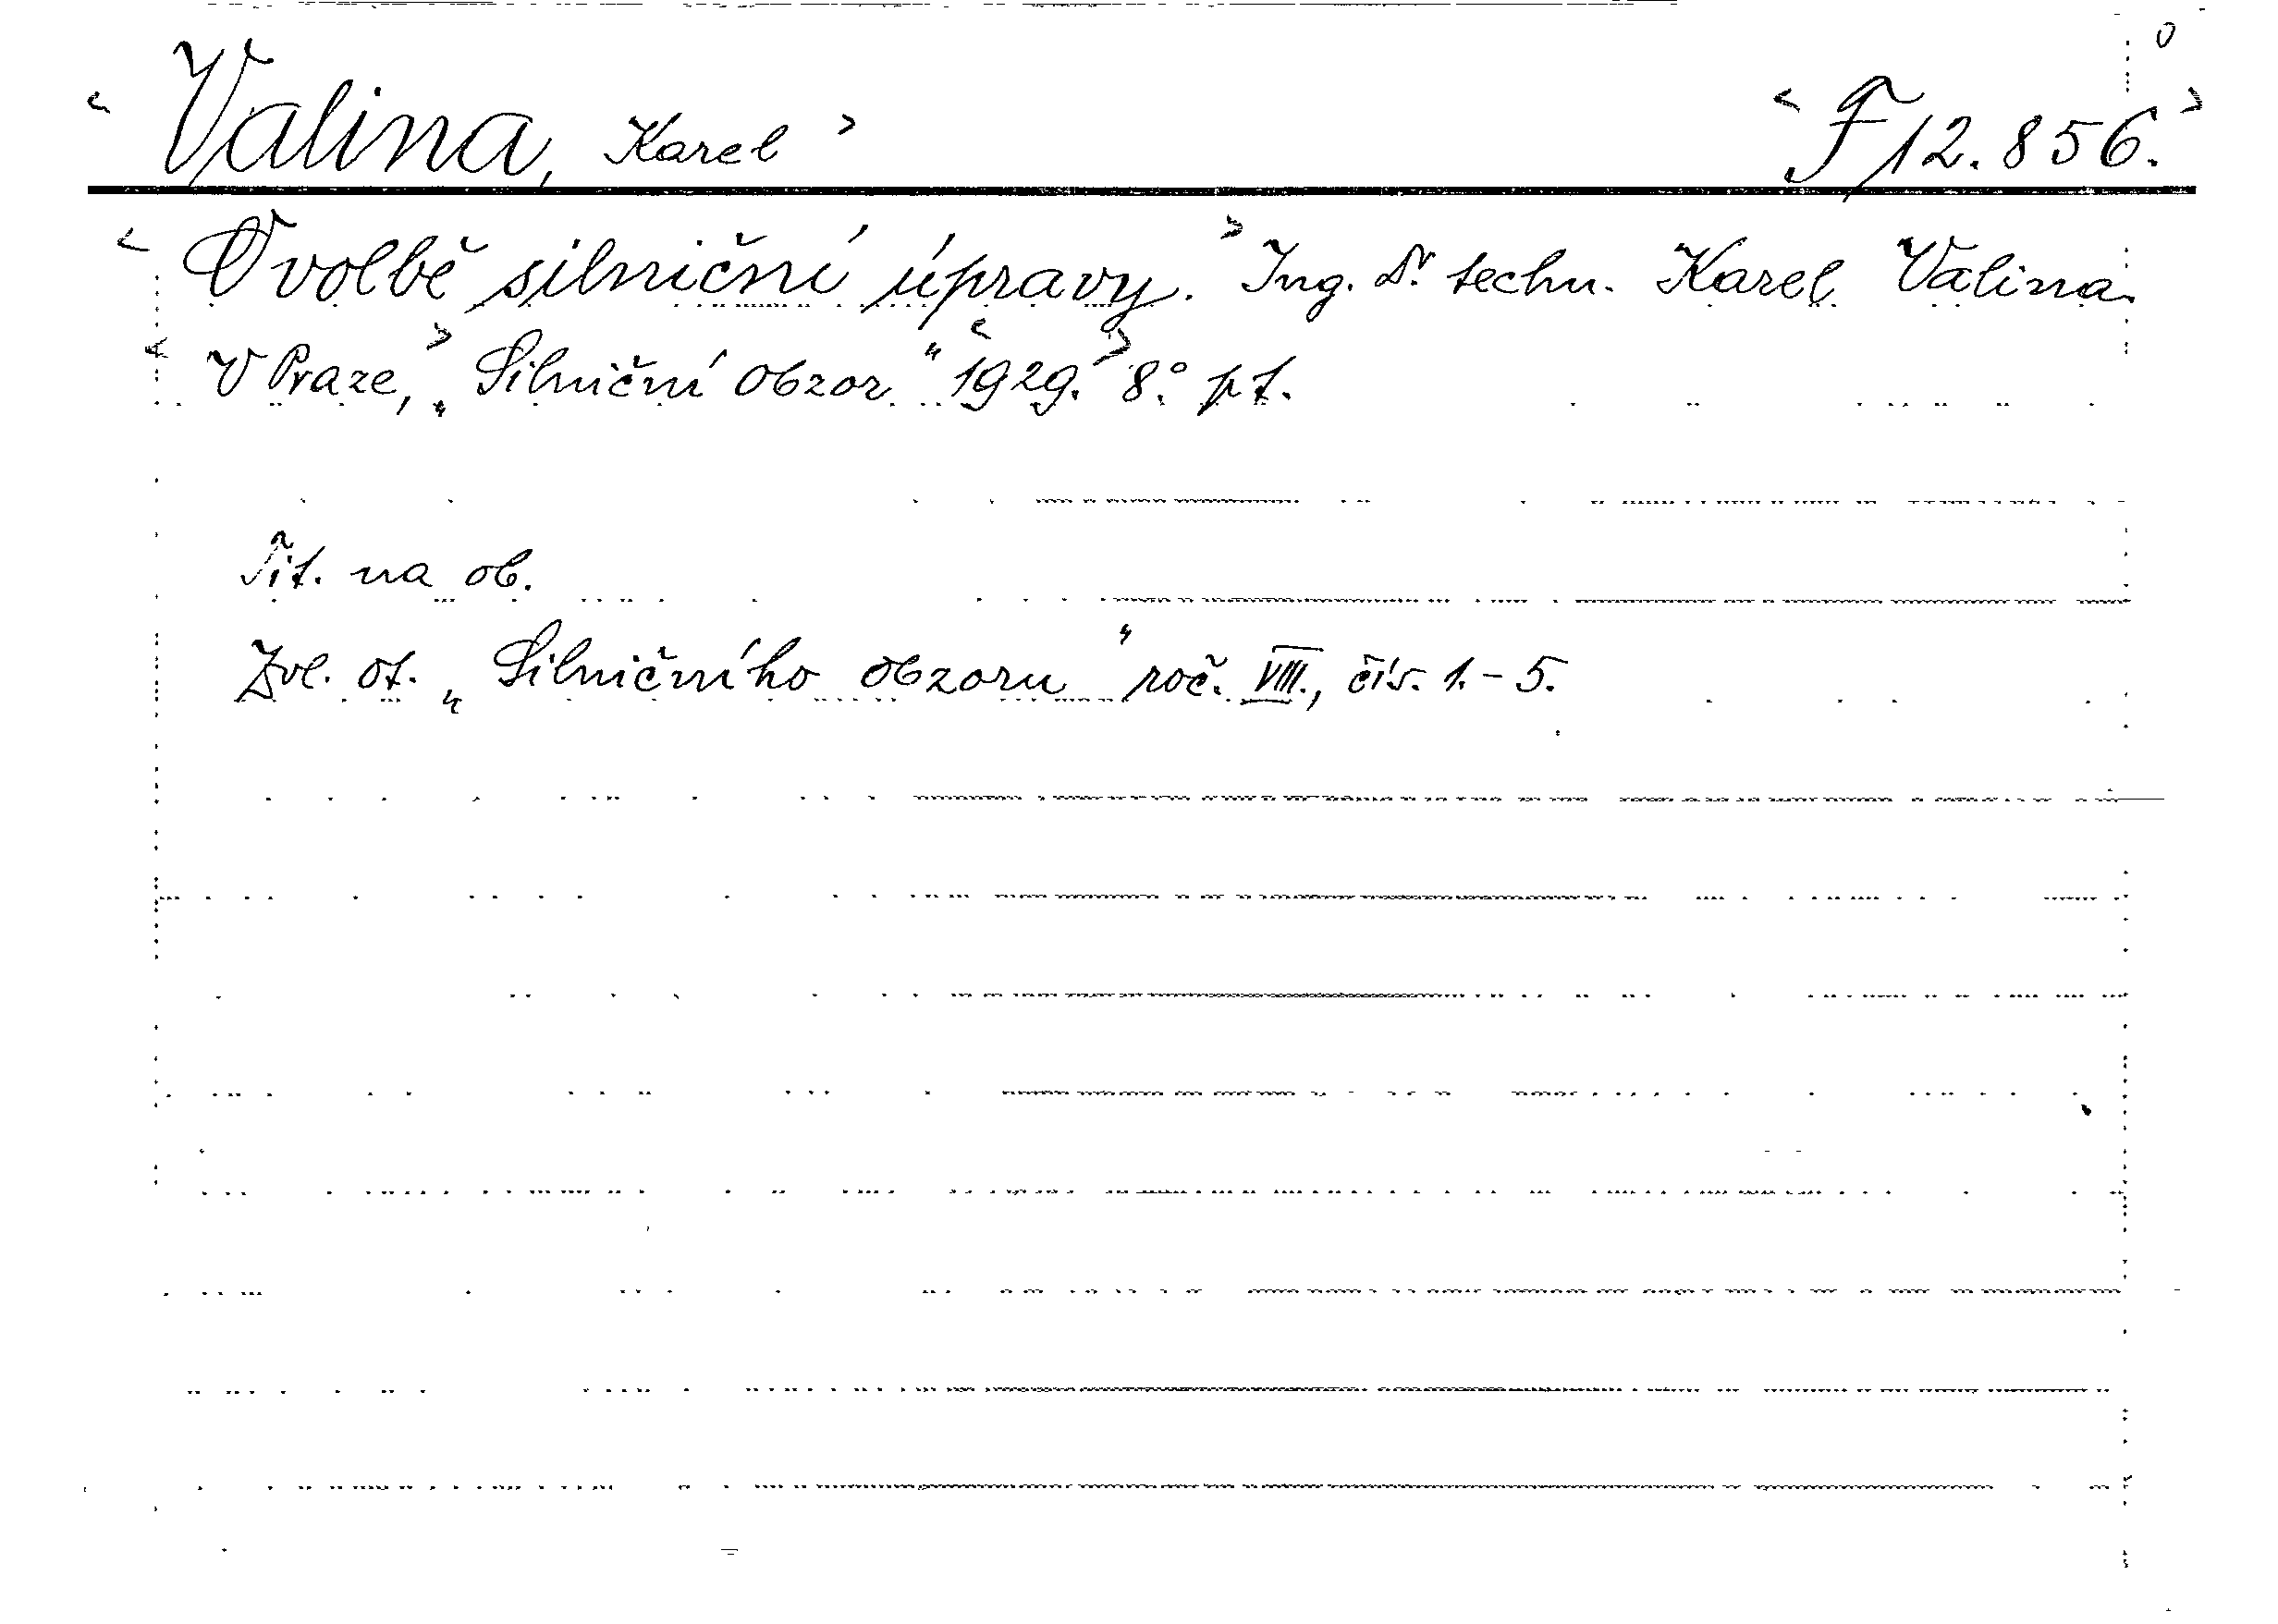 0
< Valina, Karel > < F 12.856. >
< O volbě silniční úpravy. > Ing. Dr. techn. Karel Valina.
< V Praze, > „Silniční obzor“ < 1929. > 8.° pt.
Tit. na ob.
Zvl. ot. „Silničního obzoru“ roč. VIII., čís. 1.-5.